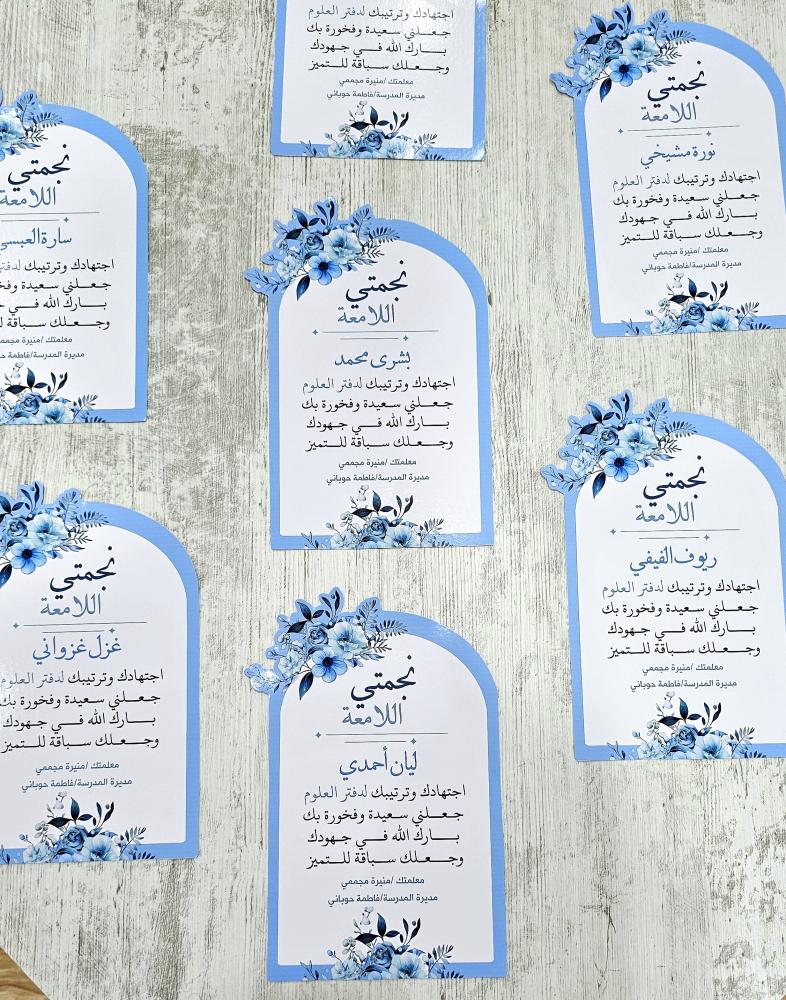 اجتهادك وترتيبك لدفتر العلوم
جعلني سعيدة وفخورة بك
بارك الله في جهودك
وجعلك سباقة للتميز
معلمتك /منيرة مجممي
مديرة المدرسة/فاطمة حوباني
نجمتي
اللامعة
نورة مشيخي
اجتهادك وترتيبك لدفتر العلوم
جعلني سعيدة وفخورة بك
بارك الله في جهودك
وجعلك سباقة للتميز
معلمتك /منيرة مجممي
مديرة المدرسة/فاطمة حوباني
نجمتي
اللامعة
سارة العبسي
اجتهادك وترتيبك لدفتر
جعلني سعيدة
بارك الله في
وجعلك سباقة للتميز
معلمتك /منيرة مجممي
مديرة المدرسة/فاطمة حوباني
نجمتي
اللامعة
بشرى محمد
اجتهادك وترتيبك لدفتر العلوم
جعلني سعيدة وفخورة بك
بارك الله في جهودك
وجعلك سباقة للتميز
معلمتك /منيرة مجممي
مديرة المدرسة/فاطمة حوباني
نجمتي
اللامعة
ريوف الفيفي
اجتهادك وترتيبك لدفتر العلوم
جعلني سعيدة وفخورة بك
بارك الله في جهودك
وجعلك سباقة للتميز
معلمتك /منيرة مجممي
مديرة المدرسة/فاطمة حوباني
نجمتي
اللامعة
غزل غزواني
اجتهادك وترتيبك لدفتر العلوم
جعلني سعيدة وفخورة بك
بارك الله في جهودك
وجعلك سباقة للتميز
معلمتك /منيرة مجممي
مديرة المدرسة/فاطمة حوباني
نجمتي
اللامعة
ليان أحمدي
اجتهادك وترتيبك لدفتر العلوم
جعلني سعيدة وفخورة بك
بارك الله في جهودك
وجعلك سباقة للتميز
معلمتك /منيرة مجممي
مديرة المدرسة/فاطمة حوباني